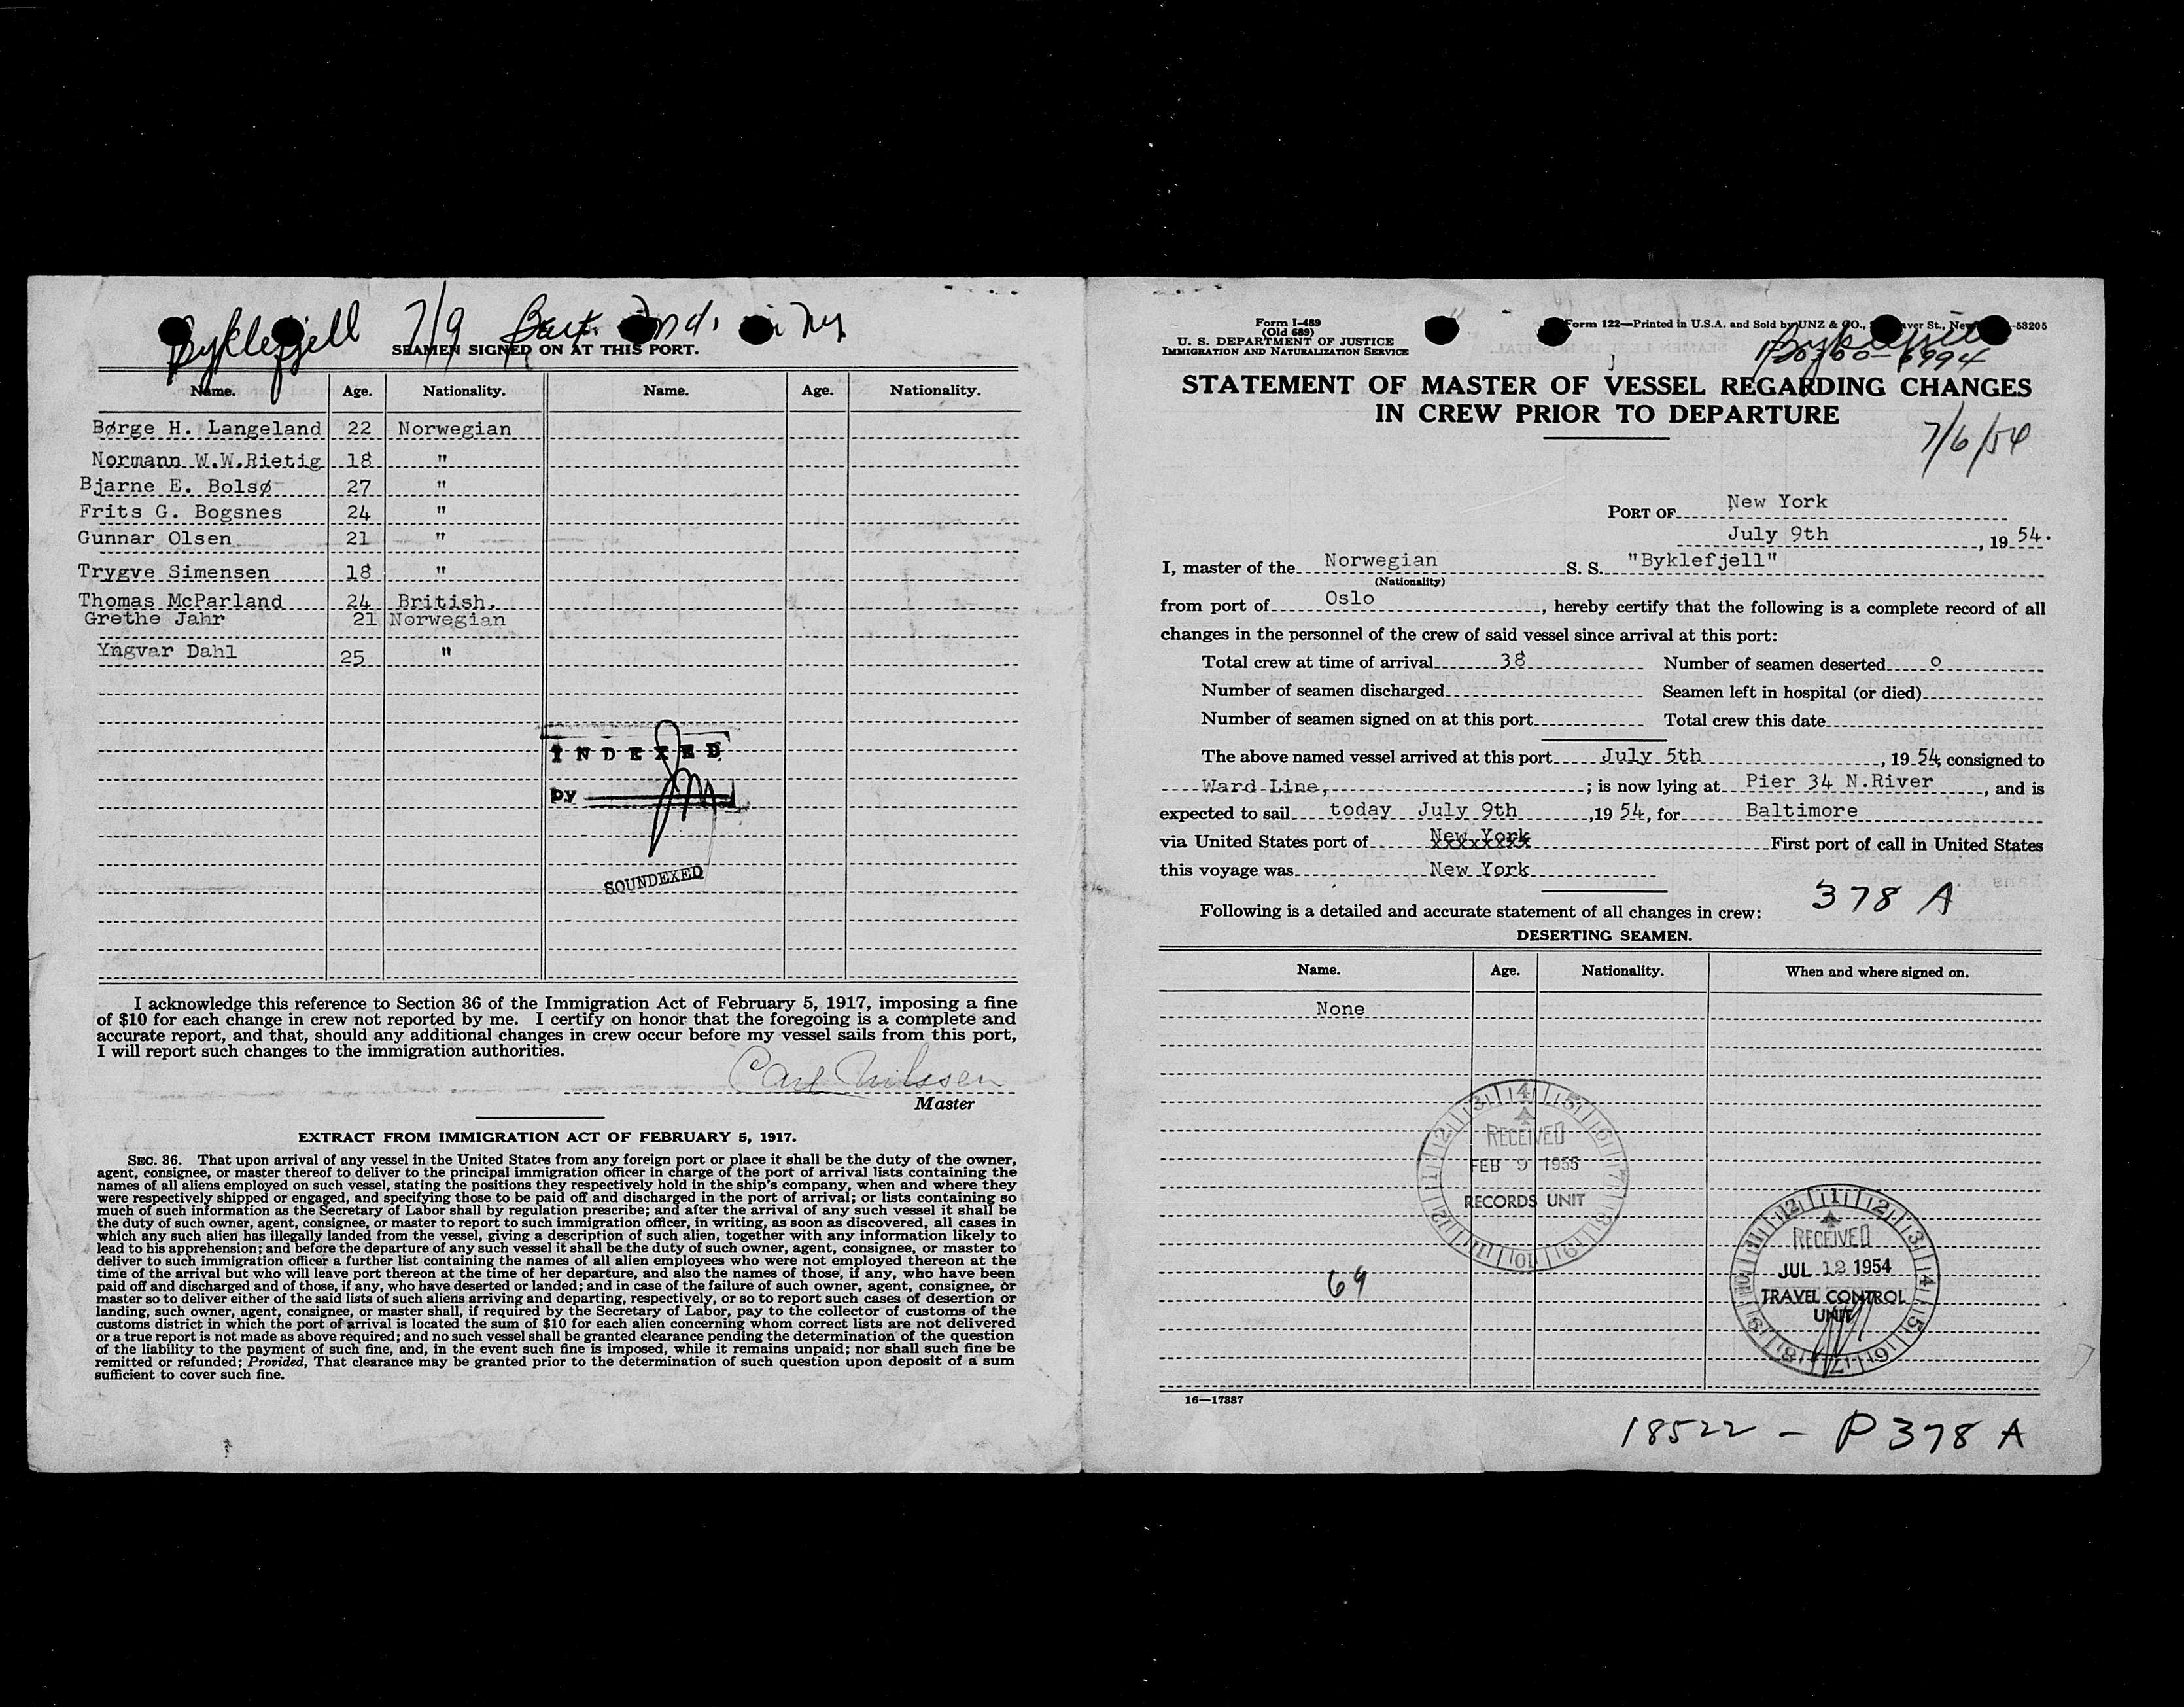 Byklefjell 7/9
SEAMEN SIGNED ON AT THIS PORT.
Name. Age. Nationality. Name. Age. Nationality.
Børge H. Langeland 22 Norwegian
Normann W.W.Rietig 18 "
Bjarne E. Bolsø 27 "
Frits G. Bogsnes 24 "
Gunnar Olsen 21 "
Trygve Simensen 18 "
Thomas McParland 24 British.
Grethe Jahr 21 Norwegian
Yngvar Dahl 25 "
INDEXED
by
SOUNDEXED
I acknowledge this reference to Section 36 of the Immigration Act of February 5, 1917, imposing a fine
of $10 for each change in crew not reported by me. I certify on honor that the foregoing is a complete and
accurate report, and that, should any additional changes in crew occur before my vessel sails from this port,
I will report such changes to the immigration authorities.
Carl Nilssen
Master
EXTRACT FROM IMMIGRATION ACT OF FEBRUARY 5, 1917.
SEC. 36. That upon arrival of any vessel in the United States from any foreign port or place it shall be the duty of the owner,
agent, consignee, or master thereof to deliver to the principal immigration officer in charge of the port of arrival lists containing the
names of all aliens employed on such vessel, stating the positions they respectively hold in the ship's company, when and where they
were respectively shipped or engaged, and specifying those to be paid off and discharged in the port of arrival; or lists containing so
much of such information as the Secretary of Labor shall by regulation prescribe; and after the arrival of any such vessel it shall be
the duty of such owner, agent, consignee, or master to report to such immigration officer, in writing, as soon as discovered, all cases in
which any such alien has illegally landed from the vessel, giving a description of such alien, together with any information likely to
lead to his apprehension; and before the departure of any such vessel it shall be the duty of such owner, agent, consignee, or master to
deliver to such immigration officer a further list containing the names of all alien employees who were not employed thereon at the
time of the arrival but who will leave port thereon at the time of her departure, and also the names of those, if any, who have been
paid off and discharged and of those, if any, who have deserted or landed; and in case of the failure of such owner, agent, consignee, or
master so to deliver either of the said lists of such aliens arriving and departing, respectively, or so to report such cases of desertion or
landing, such owner, agent, consignee, or master shall, if required by the Secretary of Labor, pay to the collector of customs of the
customs district in which the port of arrival is located the sum of $10 for each alien concerning whom correct lists are not delivered
or a true report is not made as above required; and no such vessel shall be granted clearance pending the determination of the question
of the liability to the payment of such fine, and, in the event such fine is imposed, while it remains unpaid; nor shall such fine be
remitted or refunded; Provided, That clearance may be granted prior to the determination of such question upon deposit of a sum
sufficient to cover such fine.
Form I-489
(Old 689)
U. S. DEPARTMENT OF JUSTICE
IMMIGRATION AND NATURALIZATION SERVICE
Form 122—Printed in U.S.A. and Sold by UNZ & CO., St., 53205
Byklefjell
STATEMENT OF MASTER OF VESSEL REGARDING CHANGES
IN CREW PRIOR TO DEPARTURE
7/6/54
PORT OF New York
July 9th, 19 54.
I, master of the Norwegian S. S. "Byklefjell"
(Nationality)
from port of Oslo, hereby certify that the following is a complete record of all
changes in the personnel of the crew of said vessel since arrival at this port:
Total crew at time of arrival 38 Number of seamen deserted o
Number of seamen discharged Seamen left in hospital (or died)
Number of seamen signed on at this port Total crew this date
The above named vessel arrived at this port July 5th, 19 54, consigned to
Ward Line, ; is now lying at Pier 34 N.River, and is
expected to sail today July 9th ,19 54, for Baltimore
via United States port of New York First port of call in United States
this voyage was New York
378 A
Following is a detailed and accurate statement of all changes in crew:
DESERTING SEAMEN.
Name. Age. Nationality. When and where signed on.
None
RECEIVED
FEB 9 1955
RECORDS UNIT
RECEIVED
JUL 12 1954
TRAVEL CONTROL
UNIT
69
16—17887
18522 - P 378 A